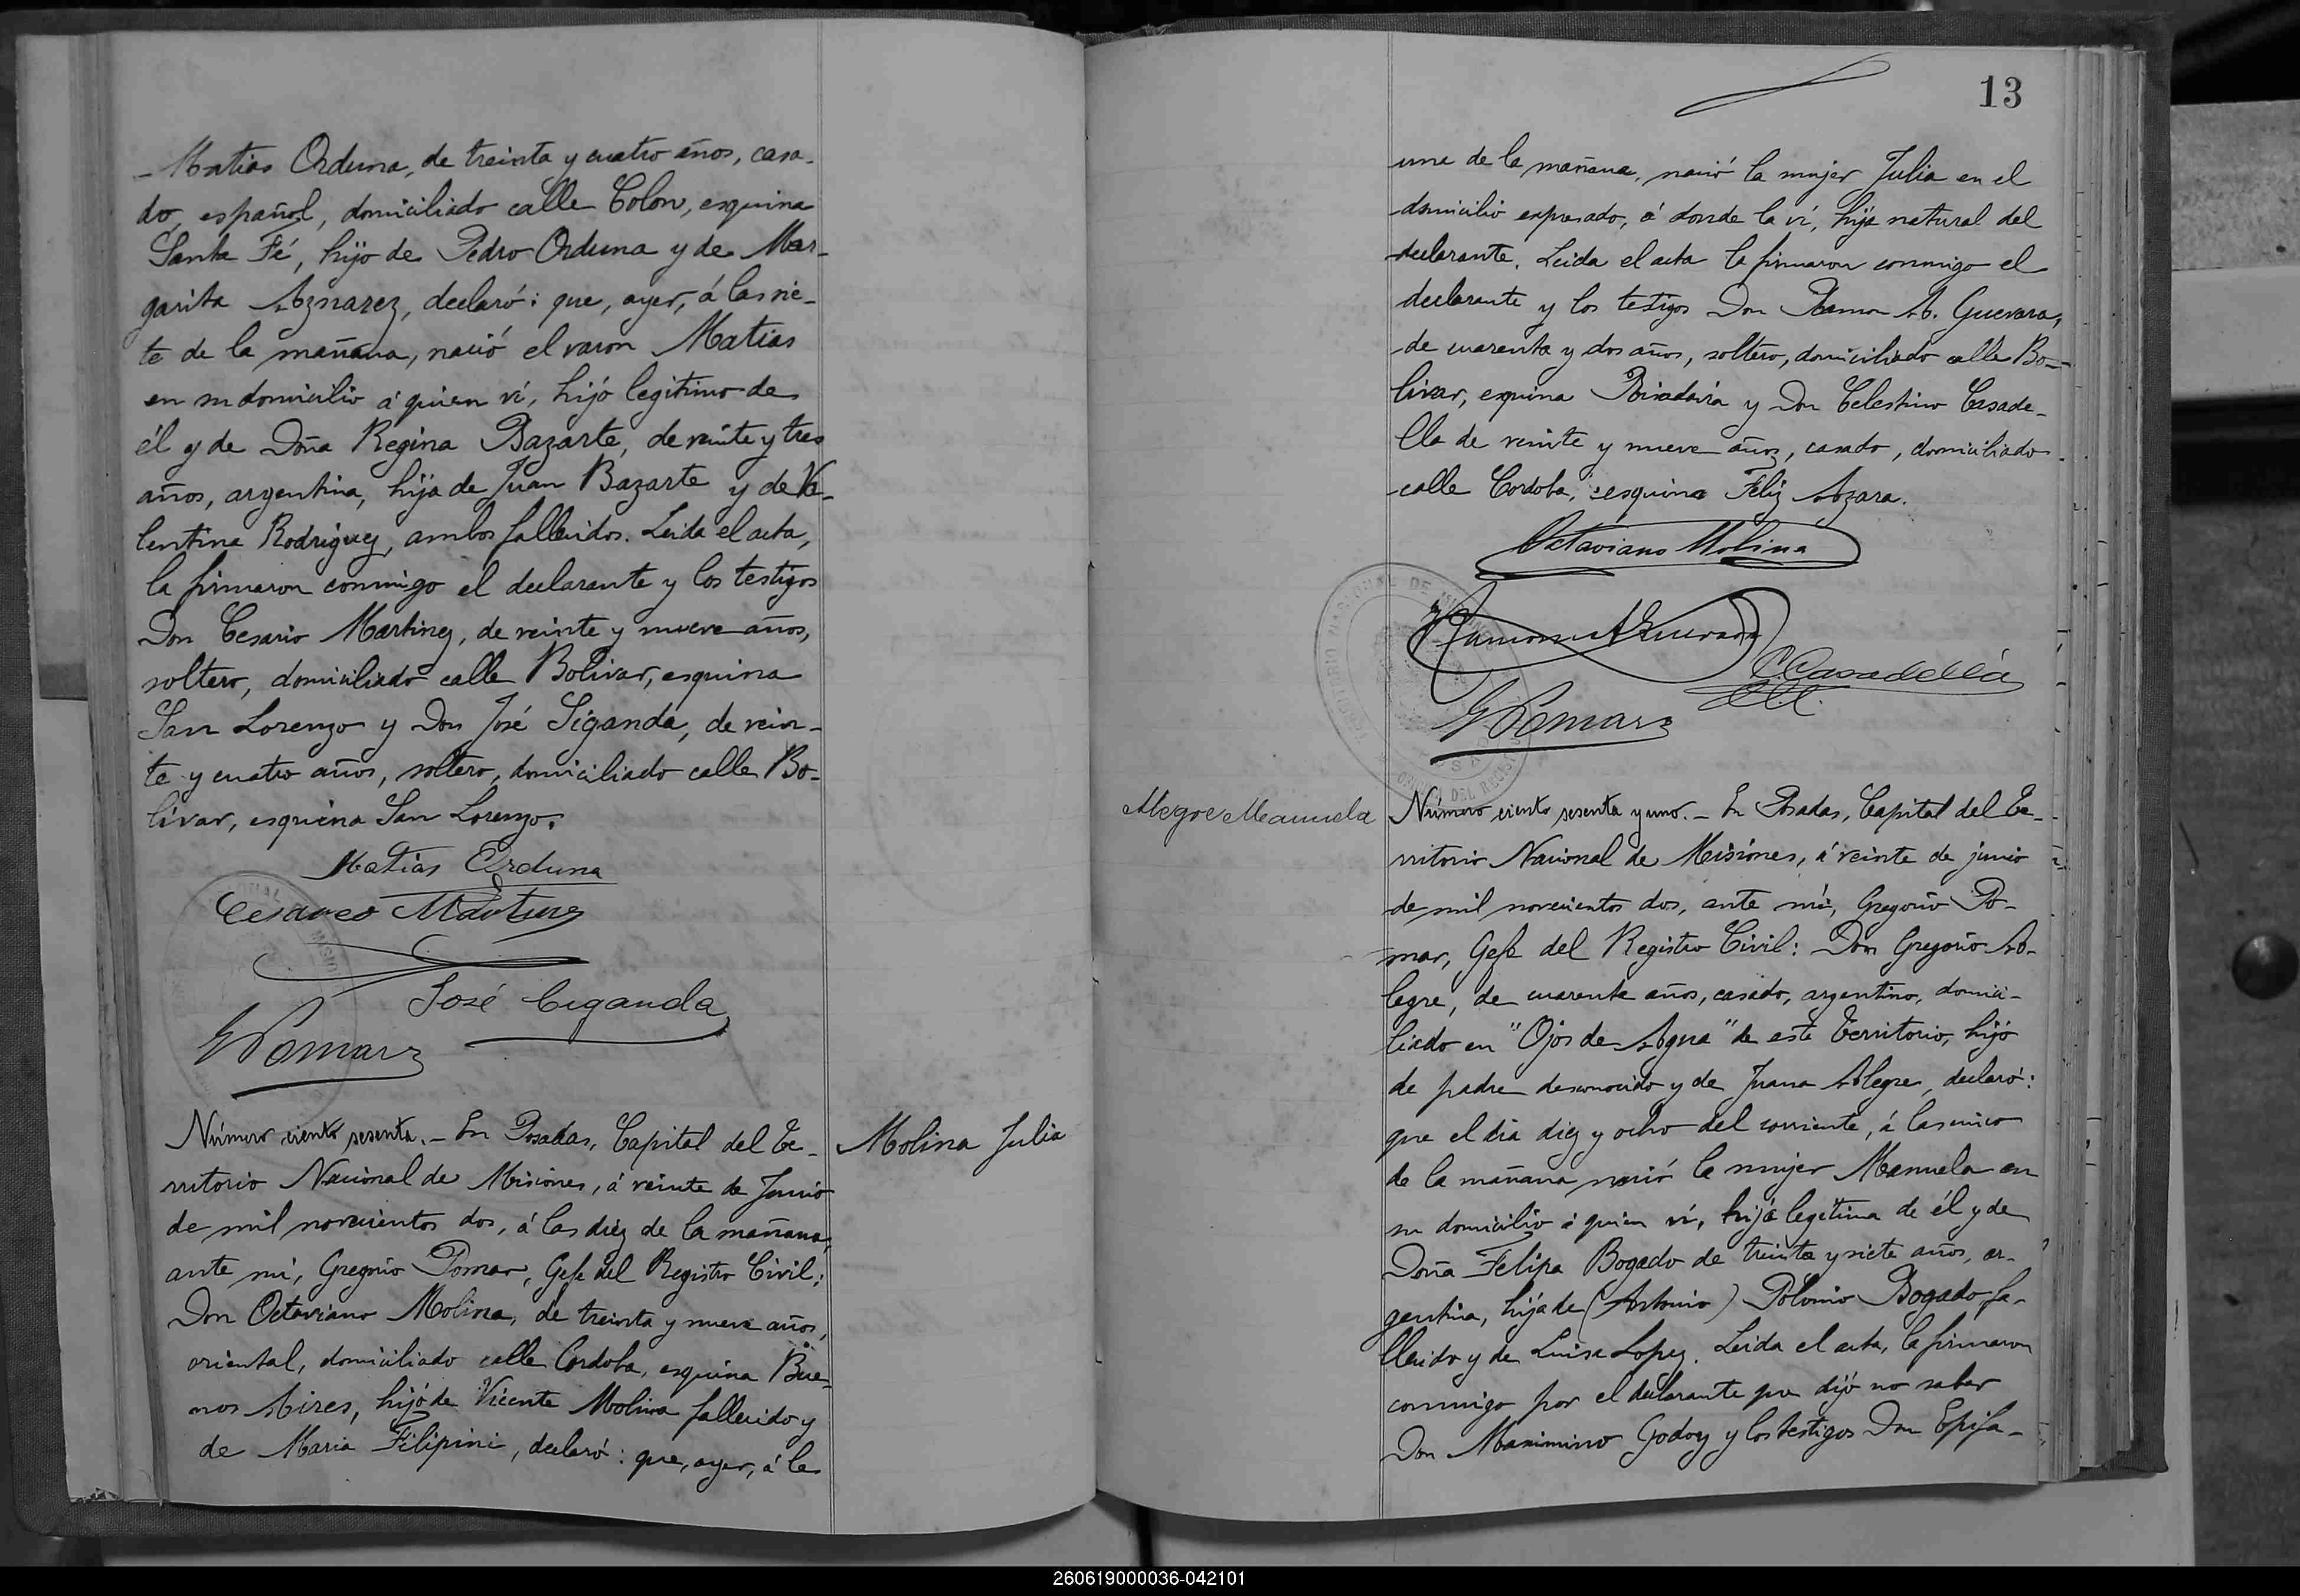 Matias Orduna, de treinta y cuatro años, casa-
do, español, domiciliado calle Colon, esquina
Santa Fé, hijo de Pedro Orduna y de Mar-
garita Aznarez, declaró: que, ayer, á las sie-
te de la mañana, nació el varon Matias
en su domicilio á quien ví, hijo legitimo de
él y de Doña Regina Bazarte, de veinte y tres
años, argentina, hija de Juan Bazarte y de Va-
lentina Rodriguez, ambos fallecidos. Leida el acta,
la firmaron conmigo el declarante y los testigos
Don Cesario Martinez, de veinte y nueve años,
soltero, domiciliado calle Bolivar, esquina
San Lorenzo y Don José Siganda, de vein-
te y cuatro años, soltero, domiciliado calle Bo-
livar, esquina San Lorenzo.
Matias Orduna
Cesareo Martinez
José Ciganda
G Pomar
Número ciento sesenta.- En Posadas, Capital del Te-
rritorio Nacional de Misiones, á veinte de Junio
de mil novecientos dos, á las diez de la mañana,
ante mi, Gregorio Pomar, Gefe del Registro Civil:
Don Octaviano Molina, de treinta y nueve años,
oriental, domiciliado calle Cordoba, esquina Bue-
nos Aires, hijo de Vicente Molina fallecido y
de Maria Filipini, declaró: que, ayer, á la
Molina Julia
13
una de la mañana, nació la mujer Julia en el
domicilio expresado, á donde la ví, hija natural del
declarante. Leida el acta la firmaron conmigo el
declarante y los testigos Don Ramon A. Guevara,
de cuarenta y dos años, soltero, domiciliado calle Bo-
livar, esquina Rivadavia y Don Celestino Casade-
lla de veinte y nueve años, casado, domiciliado
calle Cordoba, esquina Feliz Azara.
Octaviano Molina
Ramon A Guevara
C Casadella
G Pomar
Alegre Manuela
Número ciento sesenta y uno.- En Posadas, Capital del Te-
rritorio Nacional de Misiones, á veinte de junio
de mil novecientos dos, ante mi, Gregorio Po-
mar, Gefe del Registro Civil: Don Gregorio A-
legre, de cuarenta años, casado, argentino, domici-
liado en "Ojos de Agua" de este Territorio, hijo
de padre desconocido y de Juana Alegre, declaró:
que el dia diez y ocho del corriente, á las cinco
de la mañana nació la mujer Manuela en
su domicilio á quien ví, hija legitima de él y de
Doña Felipa Bogado de treinta y siete años, ar-
gentina, hija de (Antonio) Polonio Bogado fa-
llecido y de Luisa Lopez. Leida el acta, la firmaron
conmigo por el declarante que dijo no saber
Don Maximino Godoy y los testigos Don Epifa-
260619000036-042101